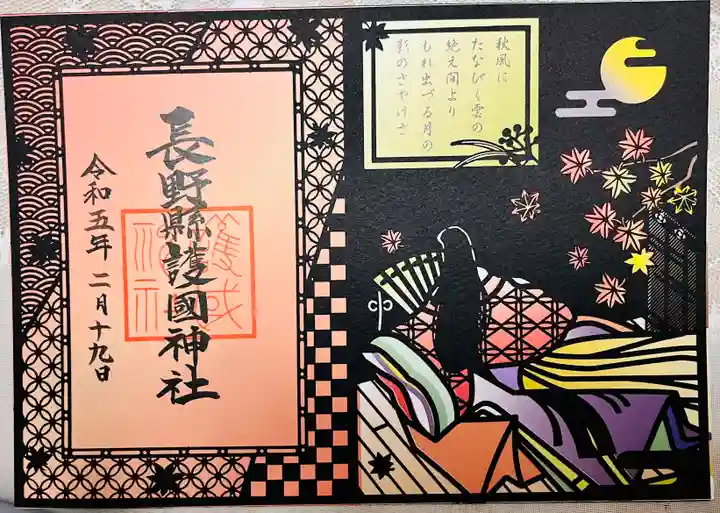 秋風に
たなびく雲の
絶え間より
もれ出づる月の
影のさやけさ
長野縣護國神社
令和五年二月十九日